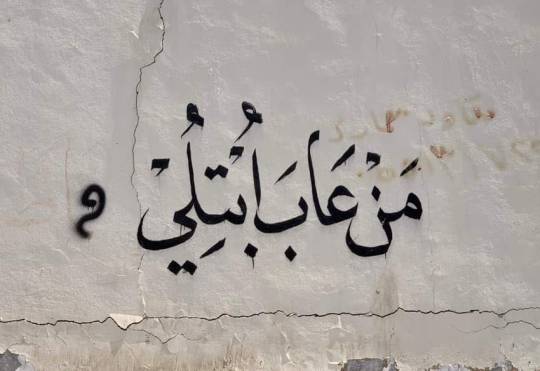 مَنْ عَابَ ابُتُلِيْ